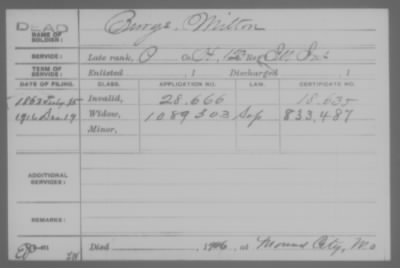 DEAD
NAME OF SOLDIER: Burge, Milton
SERVICE: Late rank, Co. H, 123 Reg't Ill. Inf.
TERM OF SERVICE: Enlisted , 1 Discharged , 1
DATE OF FILING. CLASS. APPLICATION NO. LAW. CERTIFICATE NO.
1863 July 15 Invalid, 28.666 18.635
1916 Dec 19 Widow, 1089303 Sep 833.487
Minor,
ADDITIONAL SERVICES:
REMARKS:
Died 1916 at Mound City, Mo